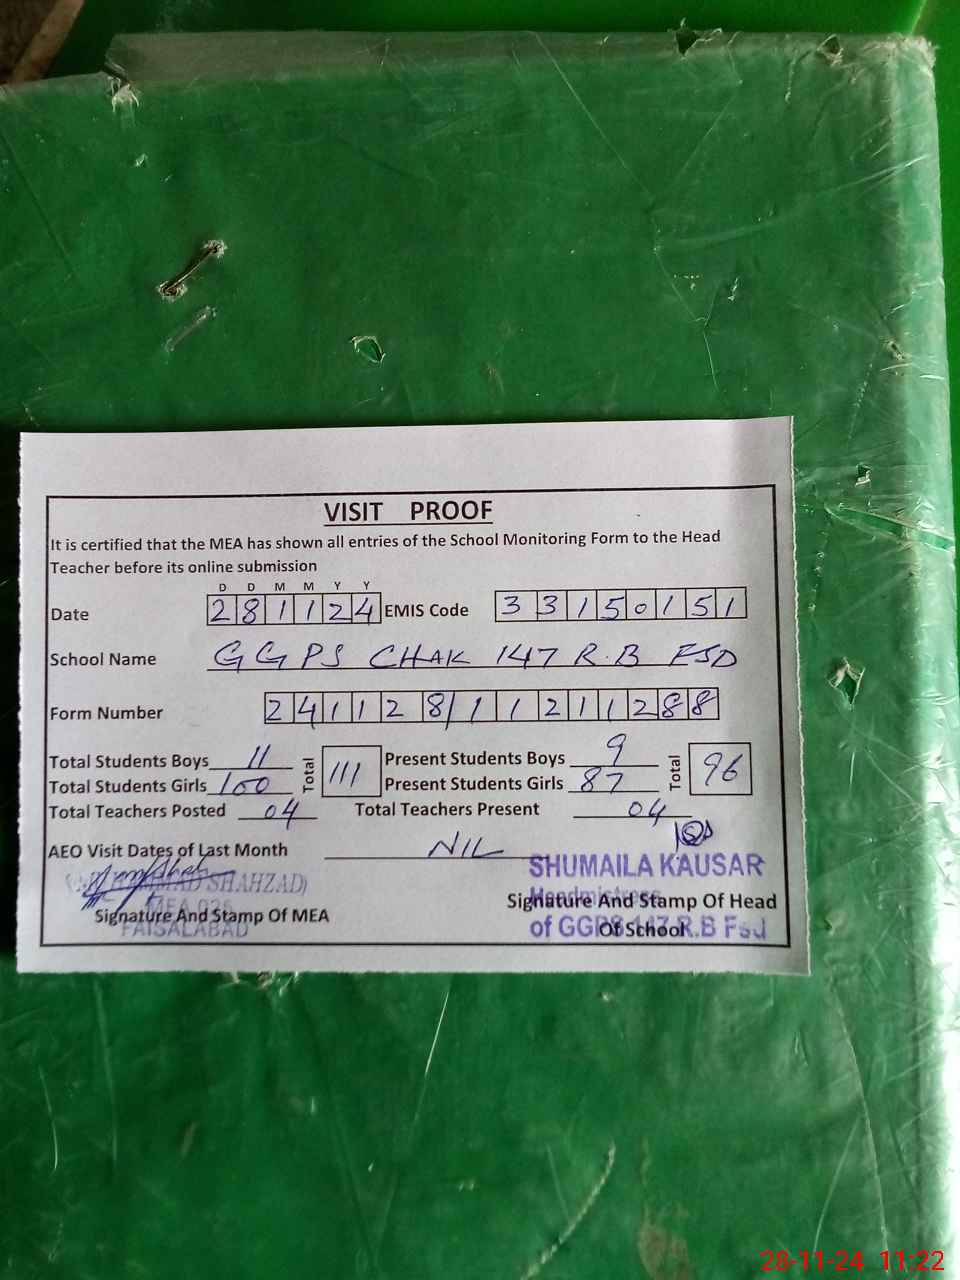 VISIT PROOF
It is certified that the MEA has shown all entries of the School Monitoring Form to the Head
Teacher before its online submission
D D M M Y Y
Date 281124 EMIS Code 33150151
School Name GGPS CHAK 147 R.B FSD
Form Number 241128/11211288
Total Students Boys 11 Total 111 Present Students Boys 9 Total 96
Total Students Girls 100 Present Students Girls 87
Total Teachers Posted 04 Total Teachers Present 04
AEO Visit Dates of Last Month NIL
SHUMAILA KAUSAR
SHAHZAD)
Headmistress
Signature And Stamp Of MEA Signature And Stamp Of Head
FAISALABAD
of GGPS 147 R.B Fsd
Of School
28-11-24 11:22